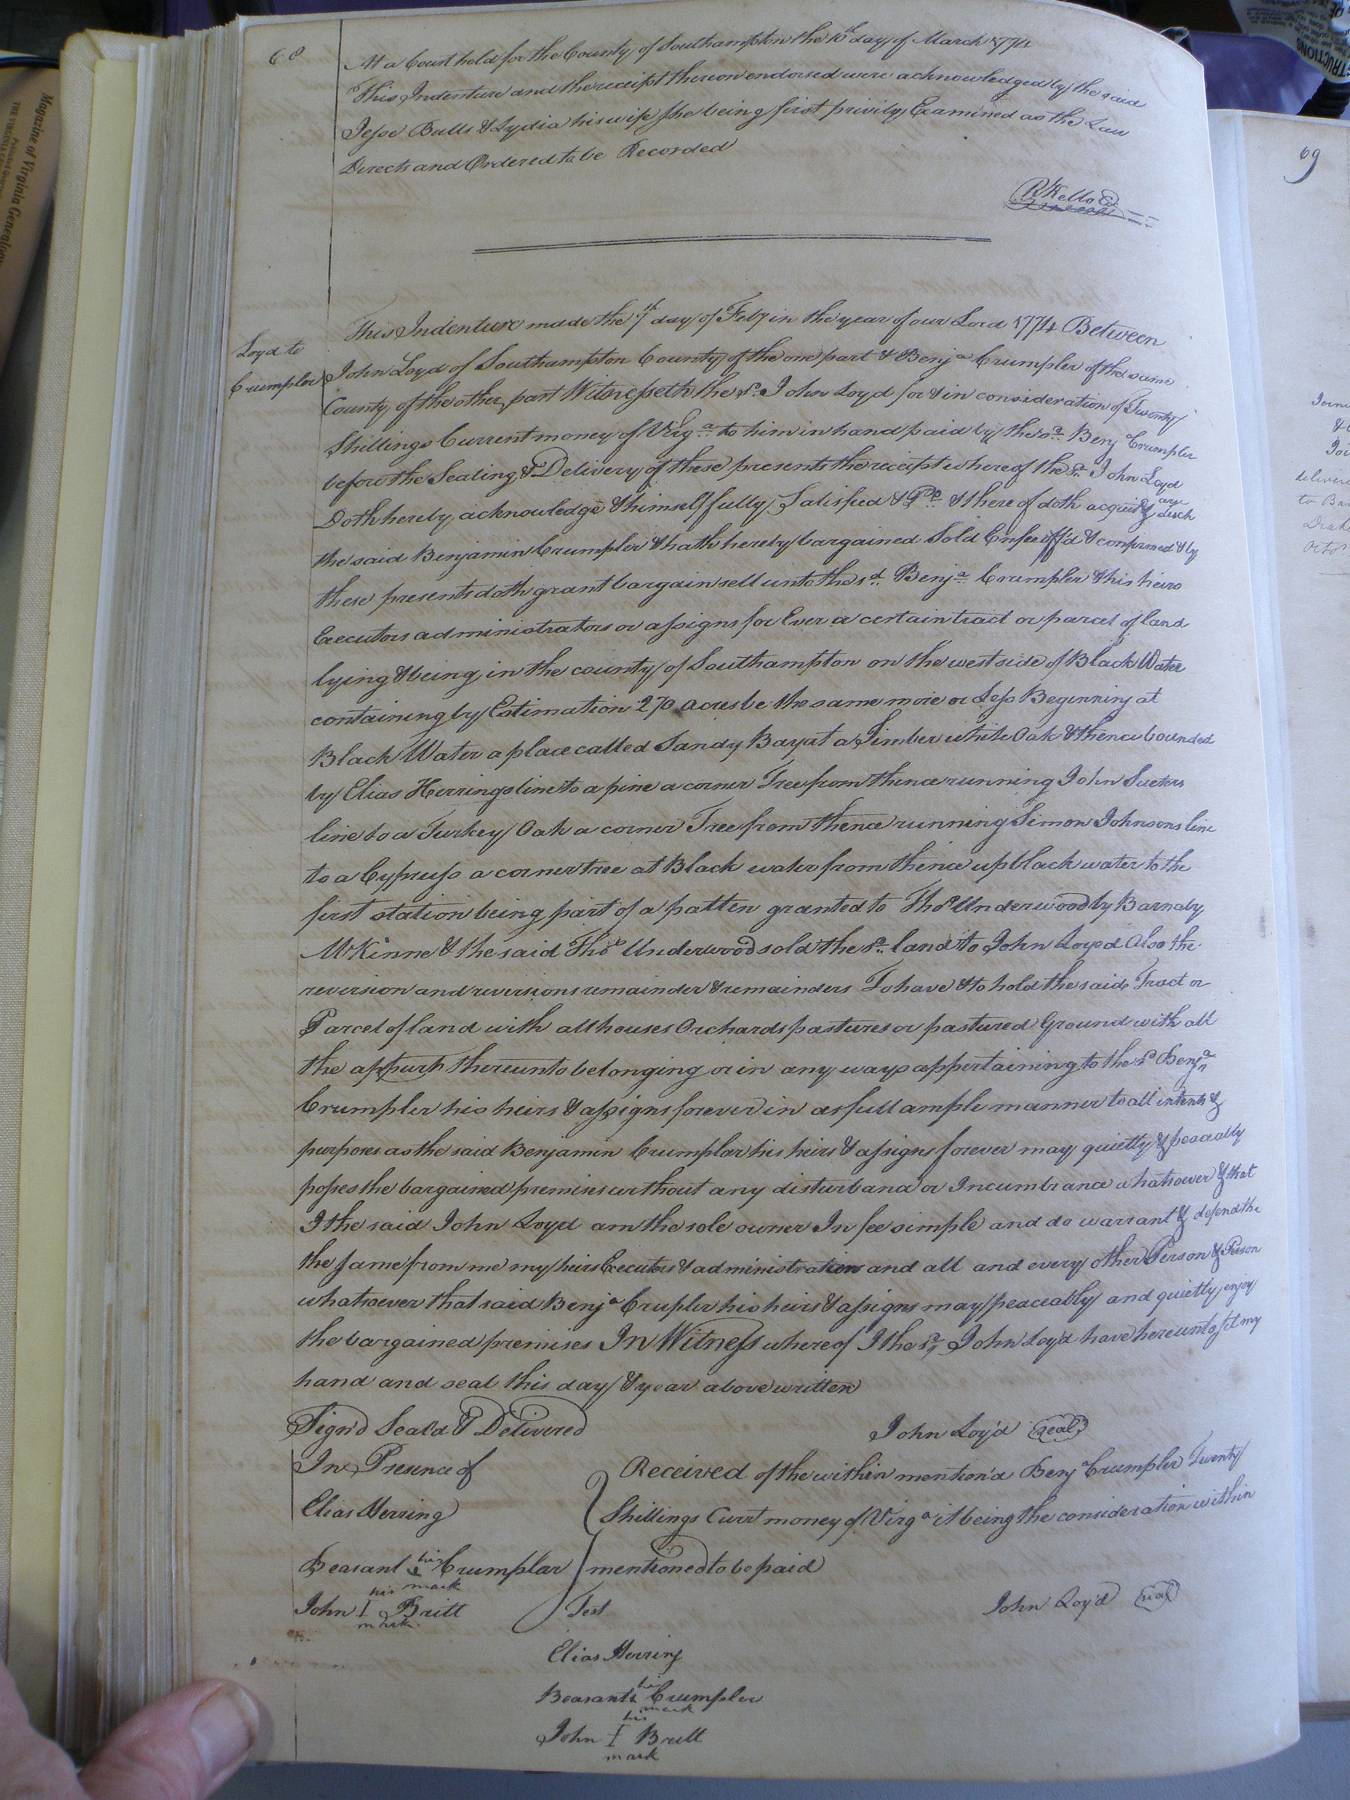 68
At a Court held for the County of Southampton the 10th day of March 1774
This Indenture and the receipt thereon endorsed were acknowledged by the said
Jesse Bulls & Lydia his wife she being first privily Examined as the Law
Directs and Ordered to be Recorded
R Kello
Loyd to
Crumpler
This Indenture made the 7th day of Feby in the year of our Lord 1774 Between
John Loyd of Southampton County of the one part & Benja Crumpler of the same
County of the other part Witnesseth the sd. John Loyd for & in consideration of Twenty
Shillings Current money of Virga to him in hand paid by the sd. Benj Crumpler
before the Sealing & Delivery of these presents the receipt whereof the sd. John Loyd
Doth hereby acknowledge & himself fully Satisfied & Pd & there of doth acquit & disch
the said Benjamin Crumpler & hath hereby bargained Sold Enfeoff'd & confirmed & by
these presents doth grant bargain sell unto the sd. Benja Crumpler & his heirs
Executors administrators or assigns for Ever a certain tract or parcel of land
lying & being in the county of Southampton on the west side of Black Water
containing by Estimation 270 acres be the same more or Less Beginning at
Black Water a place called Sandy Bay at a Timber white Oak & thence bounded
by Elias Herrings line to a pine a corner Tree from thence running John
line to a Turkey Oak a corner Tree from thence running Simon Johnsons line
to a Cypress a corner tree at Black water from thence up black water to the
first station being part of a patten granted to Thos Underwood by Barnaby
McKinne & the said Thos Underwood sold the sd. land to John Loyed Also the
reversion and reversions remainder & remainders To have & to hold the said Tract or
Parcel of land with all houses Orchards pastures or pastured Ground with all
the appurts thereunto belonging or in any ways appertaining to the sd Benja
Crumpler his heirs & assigns forever in as full ample manner to all intents &
purposes as the said Benjamin Crumplar his heirs & assigns forever may quietly & peaceably
posses the bargained premises without any disturbance or Incumbrance whatsoever & that
I the said John Loyd am the sole owner In fee simple and do warrant & defend the
the same from me my heirs Executors & administrators and all and every other Person & Person
whatsoever that said Benja Crupler his heirs & assigns may peaceably and quietly enjoy
the bargained premises In Witness where of I the sd, John Loyd have hereunto set my
hand and seal this day & year above written
Sign'd Seal'd & Delivered
John Loyd seal
In Presence of
Elias Herring
Beasant his Crumplar
mark
John I Britt
his mark
Received of the within mention'd Benj Crumpler Twenty
Shillings Currt money of Virga it being the consideration within
mentioned to be paid
Test
John Loyd seal
Elias Herring
Beasant his Crumpler
mark
his
John I Britt
mark
69